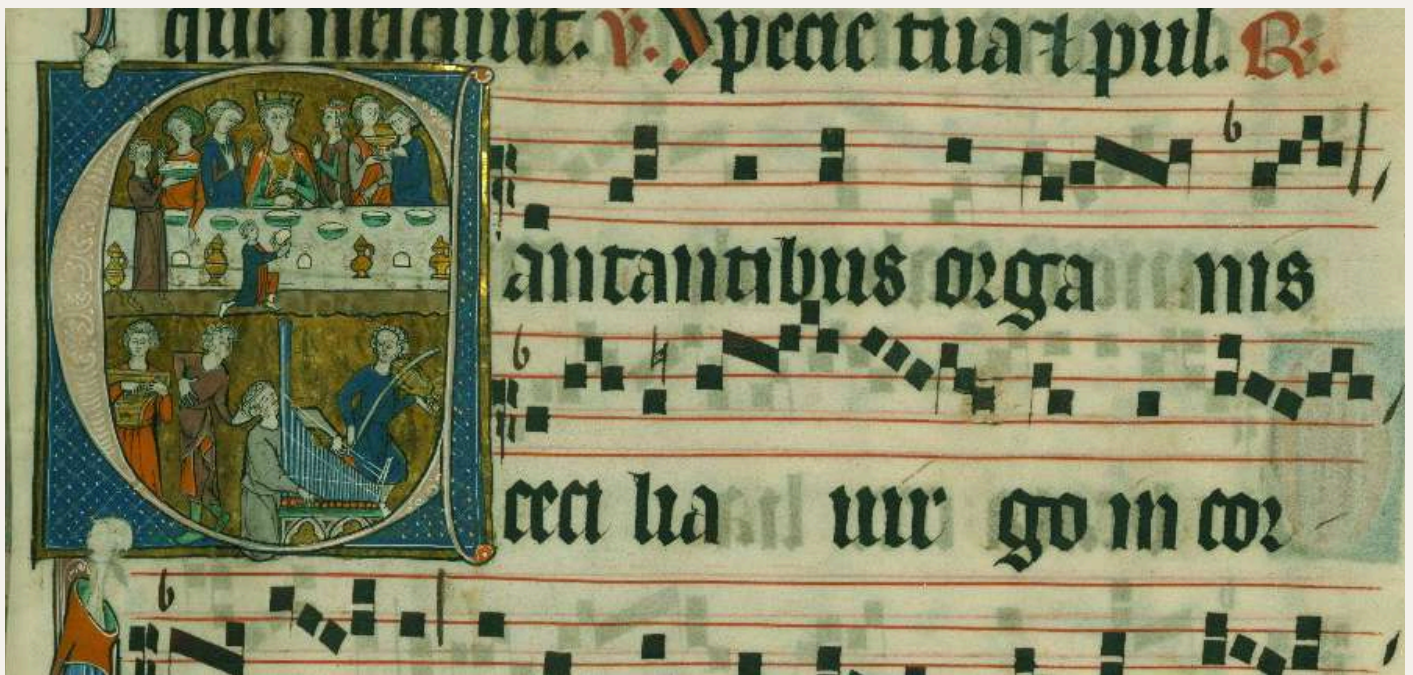 que nescivit. V. Specie tua ⁊ pul. R.
Cantantibus orga nis
ceci lia uir go in cor